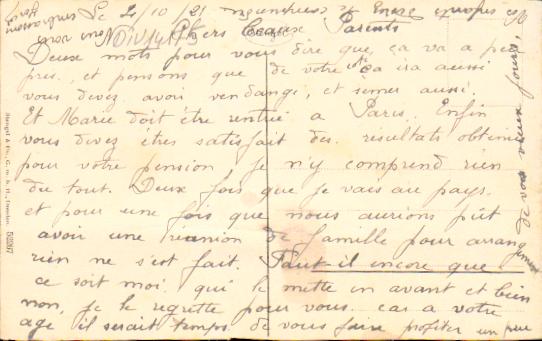 Le 4/10/21
Chers Beaux Parents
Deux mots pour vous dire que ça va a peu
pres, et pensons que de votre côté ça ira aussi
vous devez avoir vendangé, et semer aussi.
Et Marie doit être rentrée a Paris. Enfin
vous devez êtres satisfait des résultats obtenus
pour votre pension je n'y comprend rien
du tout. Deux fois que je vais au pays.
et pour une fois que nous aurions pût
avoir une réunion de famille pour arrangement
rien ne s'est fait. Faut-il encore que
ce soit moi qui le mette en avant et bien
non, je le regrette pour vous. car a votre
age il serait temps de vous faire profiter un peu
de vos vieux jours,
Stengel & Co., G. m. b. H., Dresden 52267